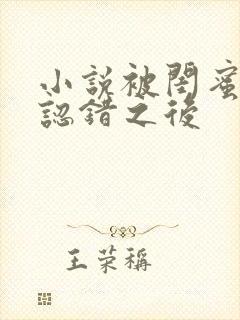 小說被閨蜜
認錯之後
王荣稱